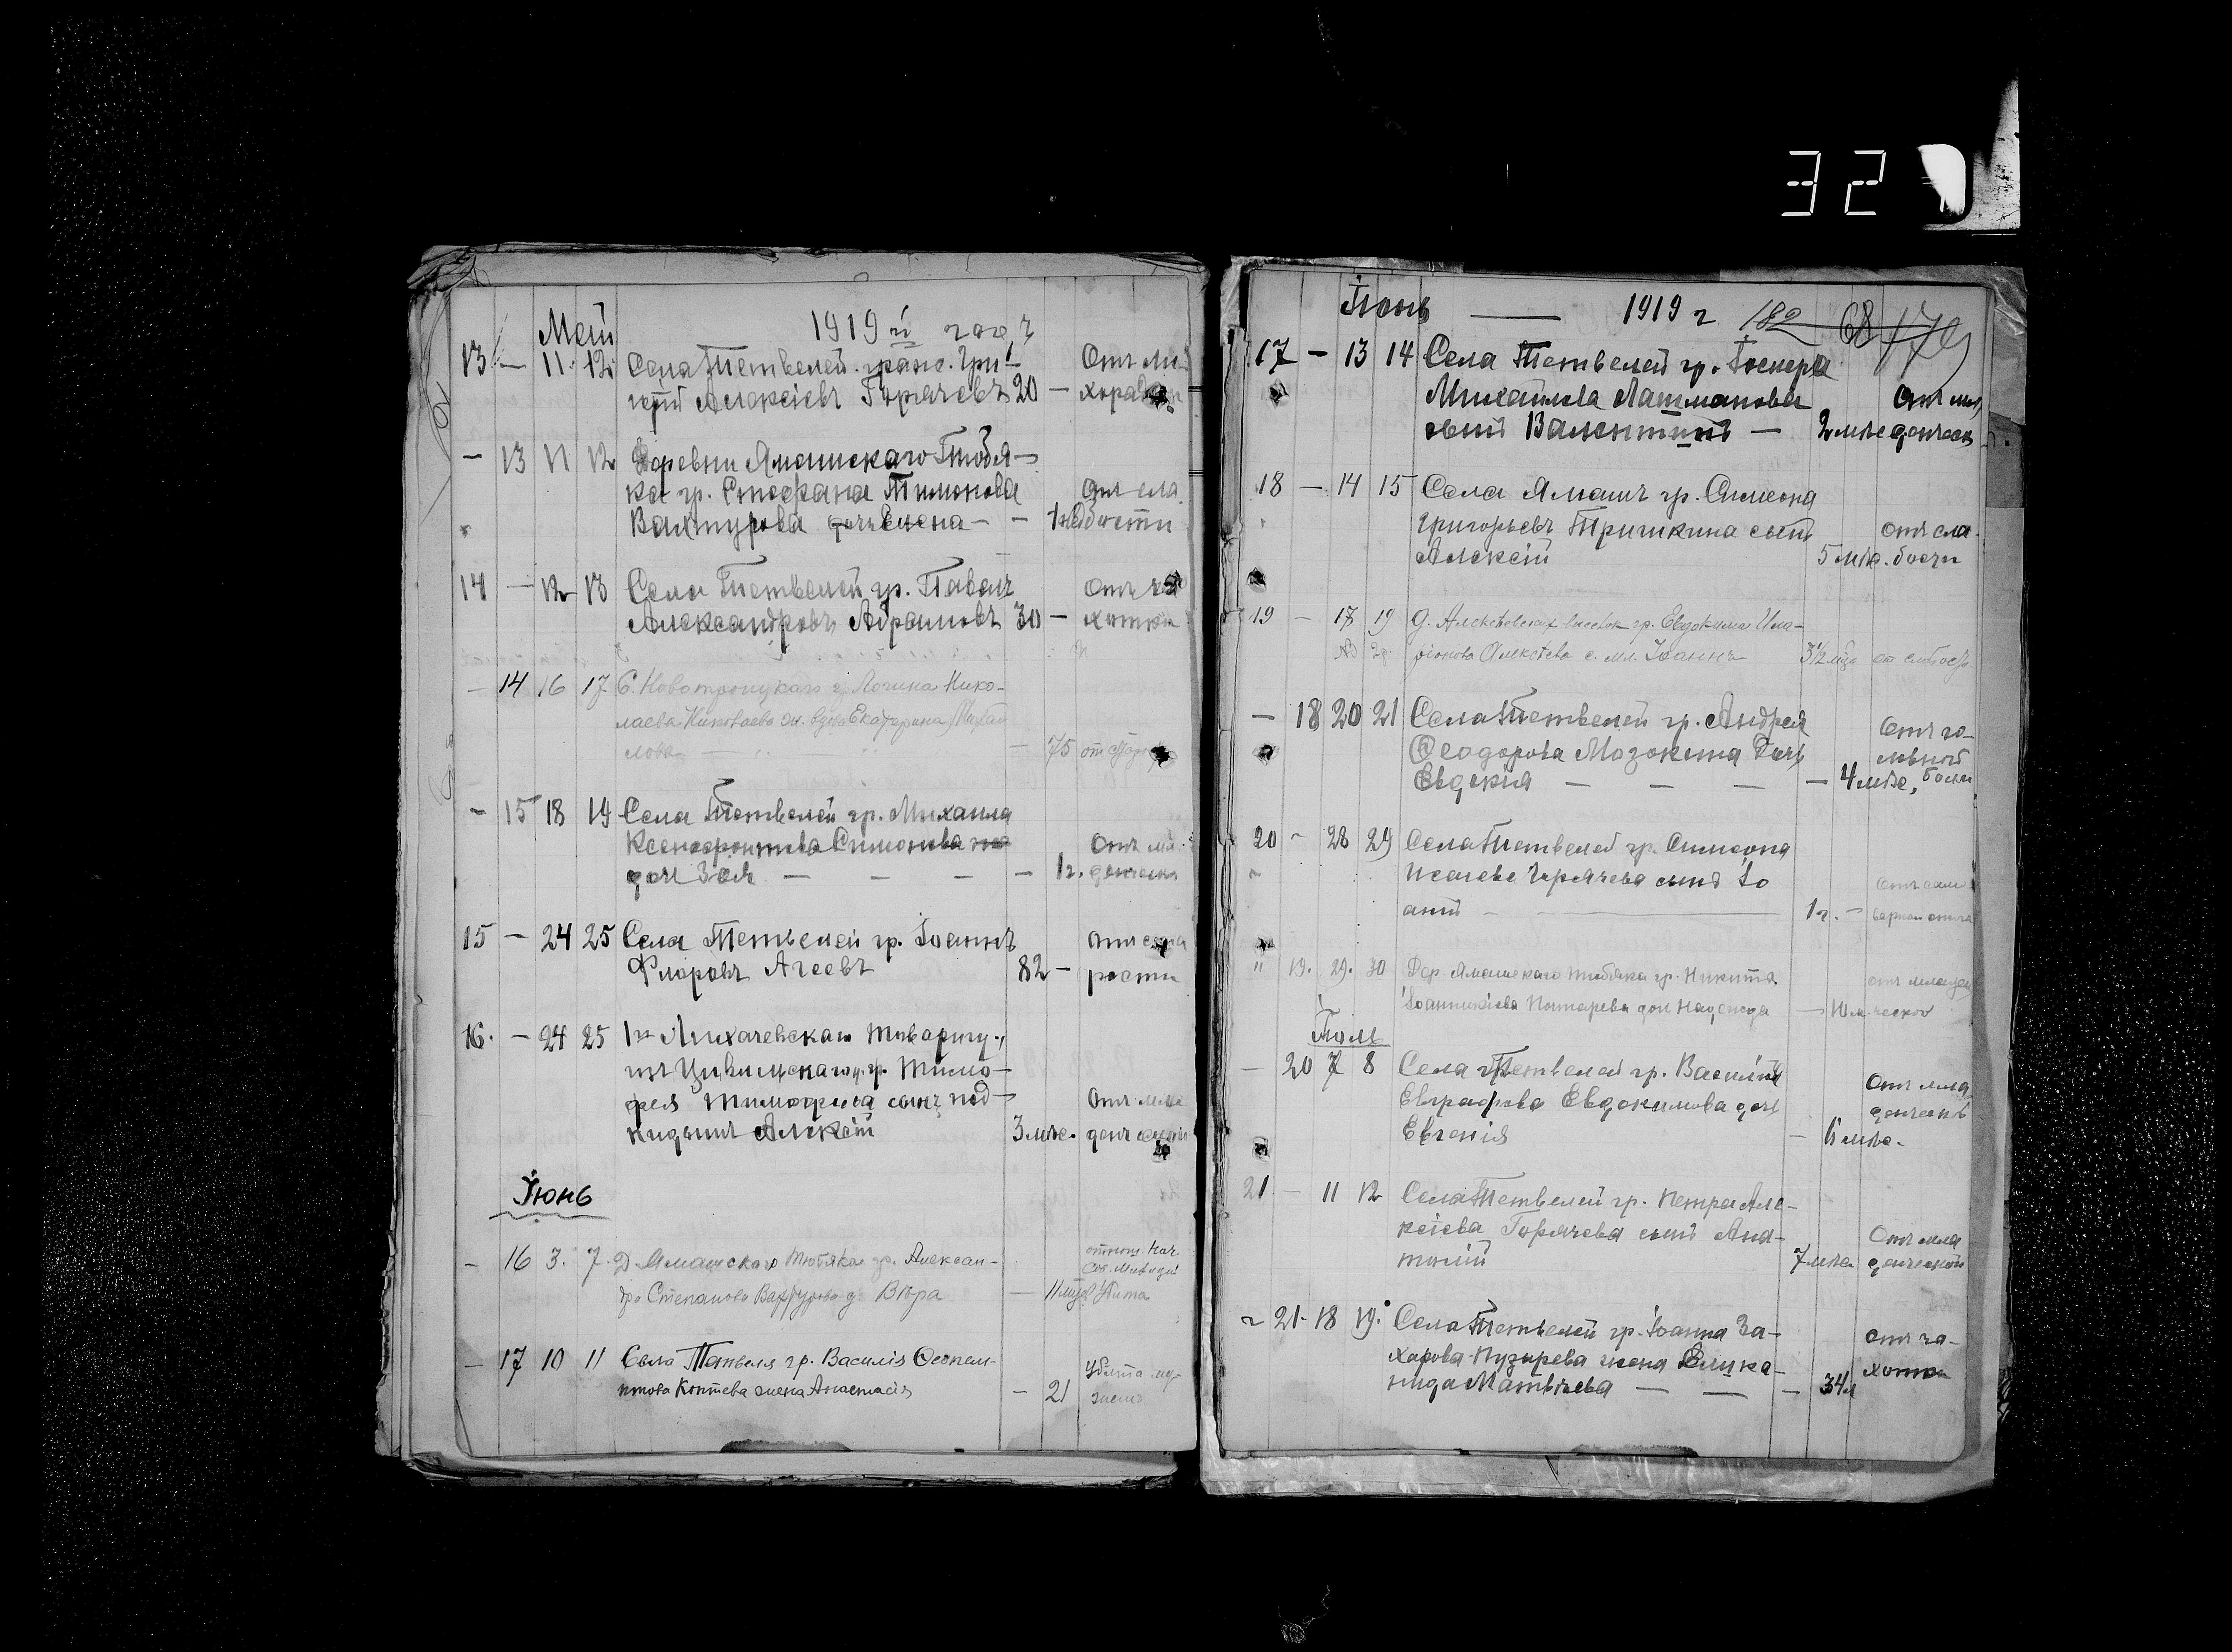 32
Май 1919 й годъ
13 — 11 12 Села Тетвелей гражд. Гри-
горій Алексѣевъ Горячевъ 20 — Отъ ли-
хорадки
— 13 11 12 Деревни Ямашскаго Тюбя-
ка гр. Стефана Тимонова
Вахтурова дочь Елена — — Отъ сла
бости
14 — 12 13 Села Тетвелей гр. Павелъ
Александровъ Абрамовъ 30 — Отъ ча
хотки
— 14 16 17 С. Новотроицкаго гр. Логина Нико-
лаева Николаева вдова Екатерина Михай
лова — — 75 от старо
— 15 18 19 Села Тетвелей гр. Михаила
Ксенофонтова Симонова
доч Зоя — — — — 1 г. Отъ мла
денческ
15 — 24 25 Села Тетвелей гр. Іоаннъ
Флоровъ Агеевъ 82 — Отъ ста
рости
16. — 24 25 Лихачевскаго
Цивильскаго у. гр. Тимо-
фея Тимофеева сынъ под-
кидышъ Алексѣй 3 мѣс. Отъ мла
денческ
Іюнь
— 16 3. 7. Д. Ямашскаго Тюбяка гр. Алексан-
дра Степанова Вахтурова д. Вѣра — 11 убита
— 17 10 11 Села Тетвеля гр. Василія Ѳеопем-
птова Коптева жена Анастасія — 21 Убита му-
жемъ
Іюнь — 1919 г 182 68
17 — 13 14 Села Тетвелей гр.
Михайлова Лашманова
сынъ Валентинъ — 2 мѣс Отъ мла
денческ
18 — 14 15 Села Ямашъ гр. Симеона
Григорьевъ Тришкина сынъ
Алексѣй 5 мѣс. отъ сла-
бости
19 — 17 19 д. Алексѣевскихъ выселок гр. Евдокима Ила-
ріонова Алексѣева с. мл. Іоаннъ 3 1/2 мѣс от слабост
— 18 20 21 Села Тетвелей гр. Андрея
Ѳеодорова Мозокина дочь
Евдокія — — — — 4 мѣс, Отъ го-
ловной
боли
20 — 28 29 Села Тетвелей гр. Симеона
Исаева Горячева сынъ Іо
анъ — 1 г. —
" 19. 29. 30 Дер. Ямашскаго Тюбяка гр. Никита
Іоанникіева дон Надежда — 10 м. отъ младен
ческой
Іюль
— 20 7 8 Села Тетвелей гр. Василія
Евграфова Евдокимова доч
Евгенія — 6 мѣс. Отъ мла
денческ
21 — 11 12 Села Тетвелей гр. Петра Але-
ксѣева Горячева сынъ Ана-
толій 7 мѣс Отъ мла
денческой
— 21 18 19. Села Тетвелей гр. Іоанна За-
харова Пузырева жена
Матвѣева — — — 34 Отъ ча-
хотки